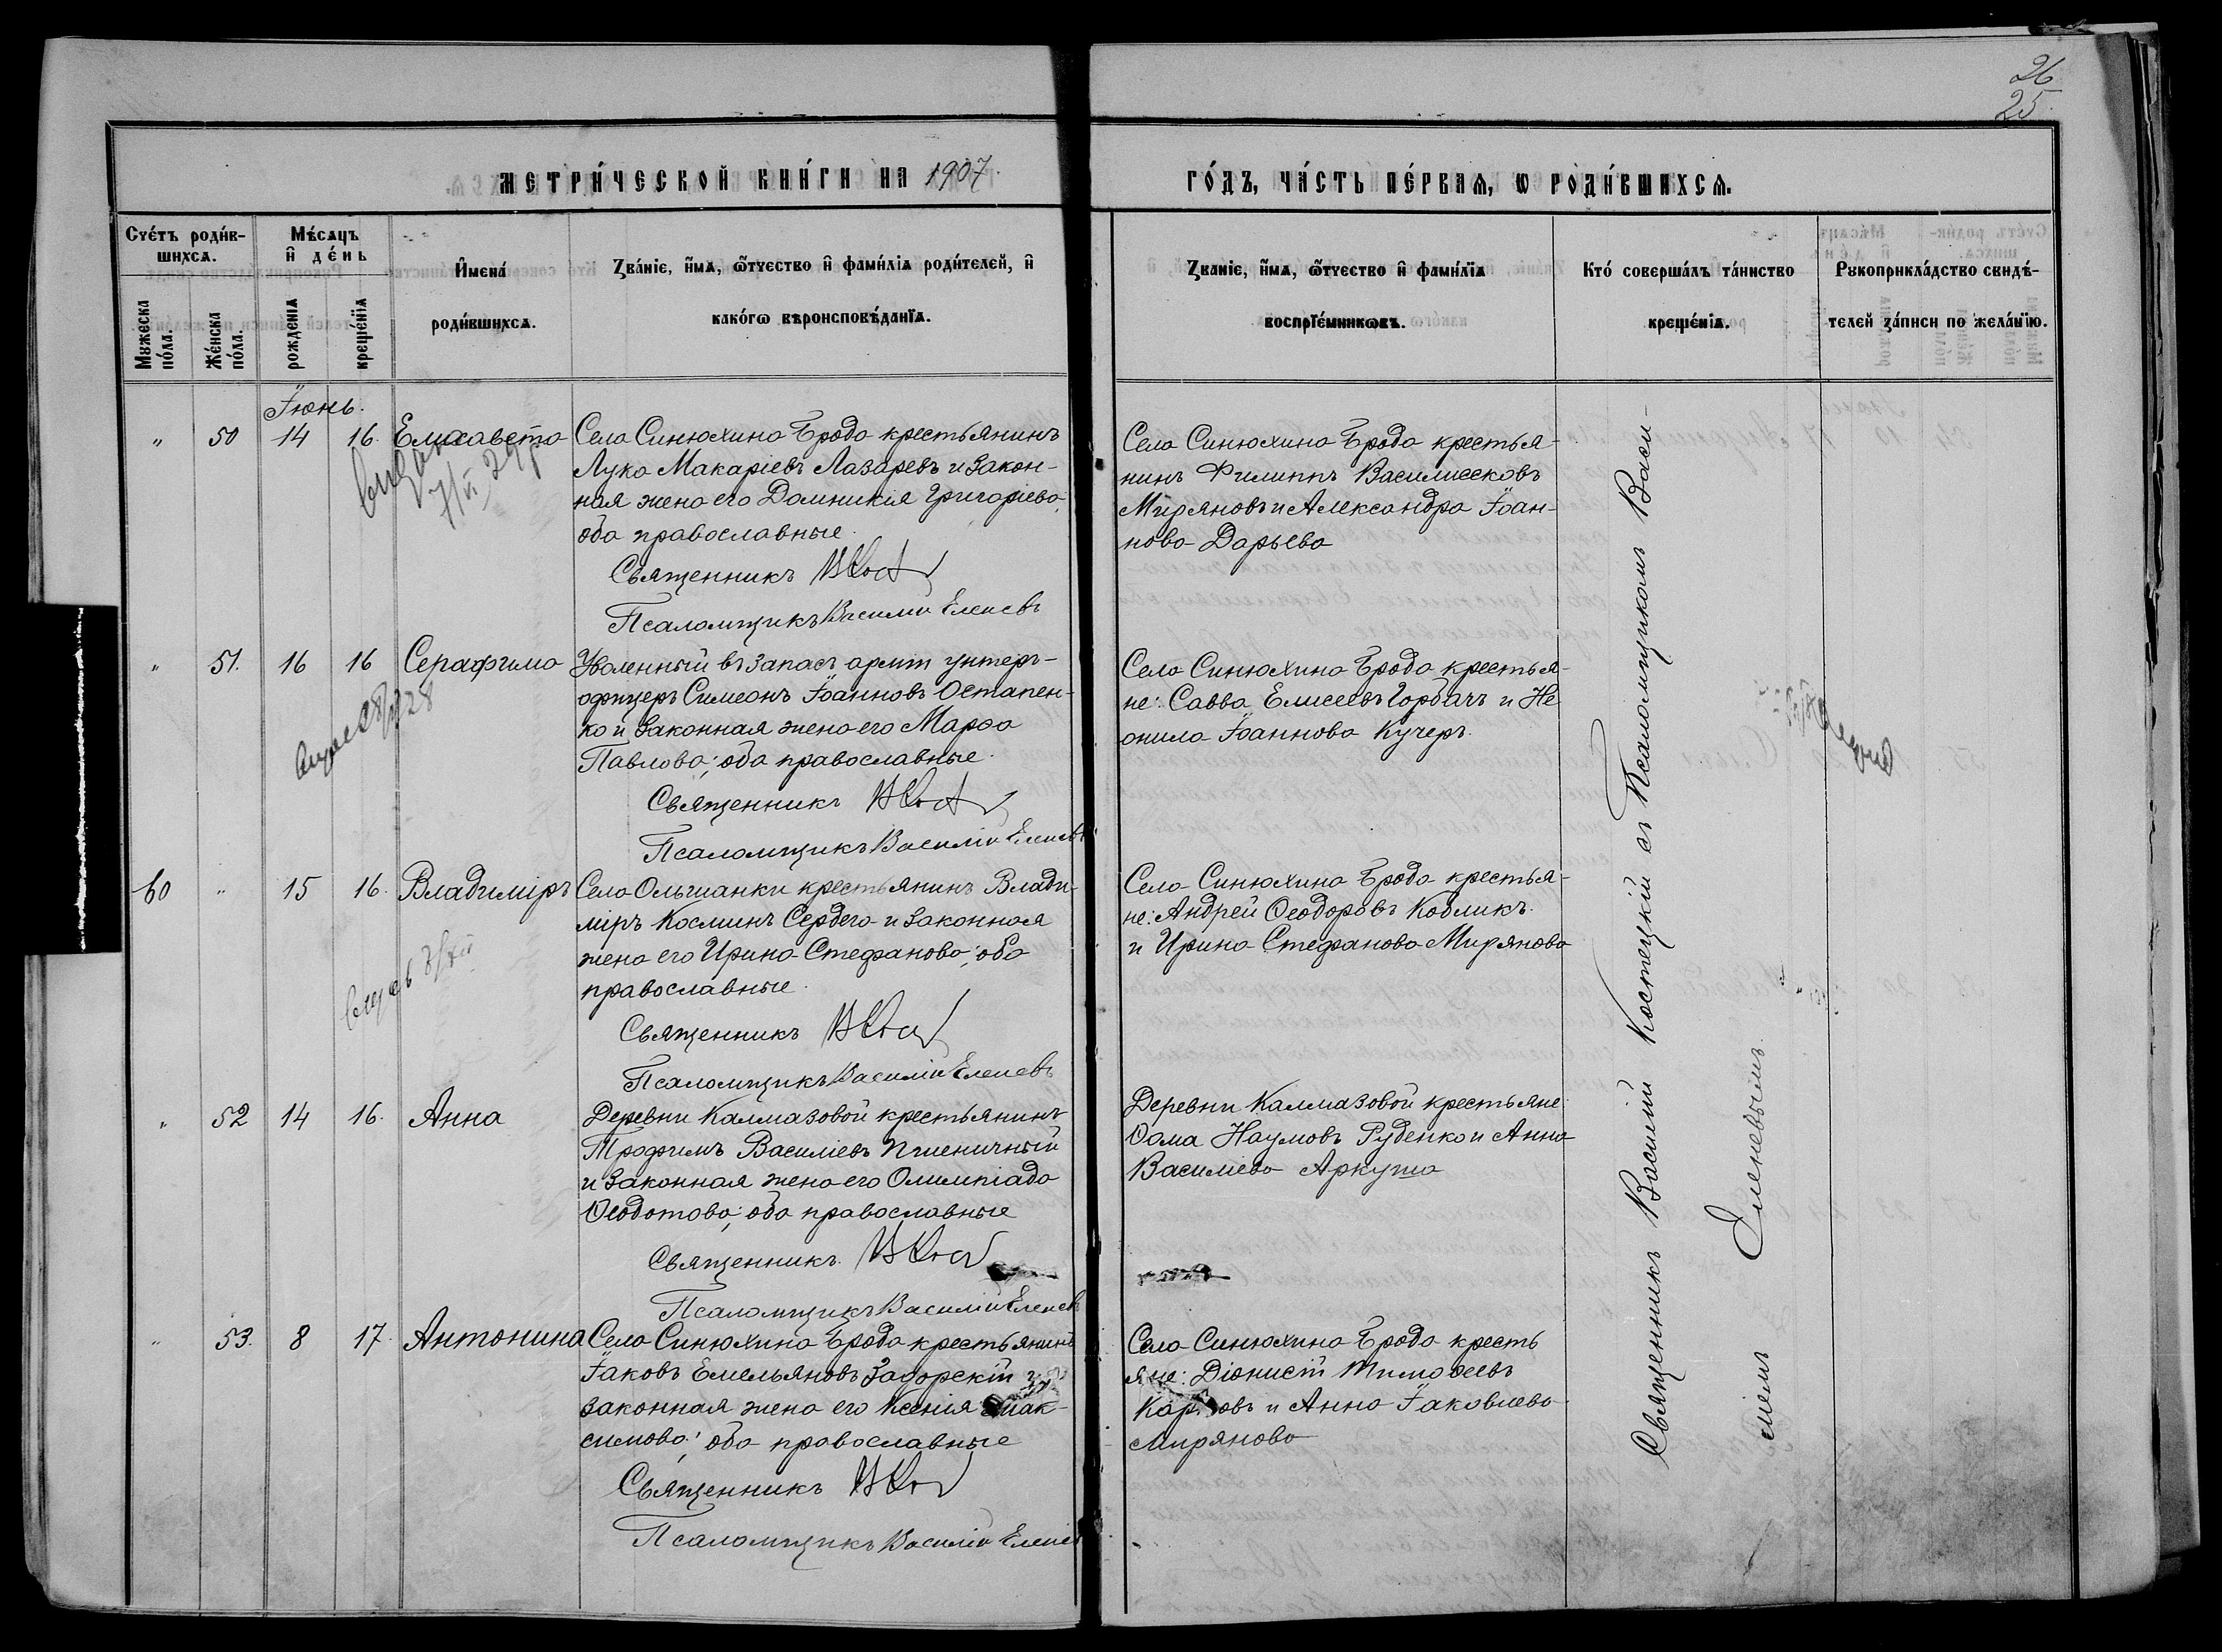 26
25
МЕТРИ́ЧЕСКОЙ КНИ́ГИ НА 1907 ГО́ДЪ, ЧА́СТЬ ПЕ́РВАѦ, Ѡ РОДИ́ВШИХСѦ.
Сче́тъ роди́в-
шихсѧ.
Мꙋжеска по́ла.
Же́нска по́ла.
Мѣ́сѧцъ
и҆ де́нь
рожденїѧ
креще́нїѧ
И҆мена́
роди́вшихсѧ.
Зва́нїе, и҆́мѧ, ѻ҆́тчество и҆ фами́лїѧ роди́телей, и҆
како́гѡ вѣроисповѣ́данїѧ.
Званїе, и҆́мѧ, ѻ҆́тчество и҆ фами́лїѧ
воспрїе́мникѡвъ.
Кто́ соверша́лъ та́инство
креще́нїѧ.
Рꙋкоприкла́дство свидѣ́-
телей за́писи по жела́нїю.
Іюнь.
" 50 14 16. Елисавета
Села Синюхина Брода крестьянинъ
Лука Макаріевъ Лазаревъ и закон-
ная жена его Домникія Григоріева,
оба православные.
Священникъ
Псаломщикъ Василій Еленевъ
Села Синюхина Брода крестья-
нинъ Филиппъ Василисковъ
Миряновъ и Александра Іоан-
нова Дарьева
" 51. 16 16 Серафима
Уволенный въ запасъ арміи унтеръ-
офицеръ Симеонъ Іоанновъ Остапен-
ко и законная жена его Марѳа
Павлова; оба православные.
Священникъ
Псаломщикъ Василій Еленевъ
Села Синюхина Брода крестья-
не: Савва Елисеевъ Горбачъ и Не
онила Іоаннова Кучеръ.
60 " 15 16. Владиміръ
Села Ольшанки крестьянинъ Влади-
міръ Косминъ Сердега и законная
жена его Ирина Стефанова; оба
православные.
Священникъ
Псаломщикъ Василій Еленевъ
Села Синюхина Брода крестья-
не: Андрей Ѳеодоровъ Кобликъ
и Ирина Стефанова Мирянова
" 52 14 16. Анна
Деревни Калмазовой крестьянинъ
Трофимъ Василіевъ Пшеничный
и законная жена его Олимпіада
Ѳеодотова; оба православные
Священникъ
Псаломщикъ Василій Еленевъ
Деревни Калмазовой крестьяне:
Ѳома Наумовъ Руденко и Анна
Василіева Аркуша
" 53. 8 17 Антонина
Села Синюхина Брода крестьянинъ
Іаковъ Емельяновъ Загорскій и
законная жена его Ксенія Мак-
симова; оба православные
Священникъ
Псаломщикъ Василій Еленевъ
Села Синюхина Брода кресть
яне: Діонисій Тимоѳеевъ
и Анна Іаковлева
Мирянова
Священникъ Василій Костецкій съ Псаломщикомъ Васи-
ліемъ Еленевымъ.